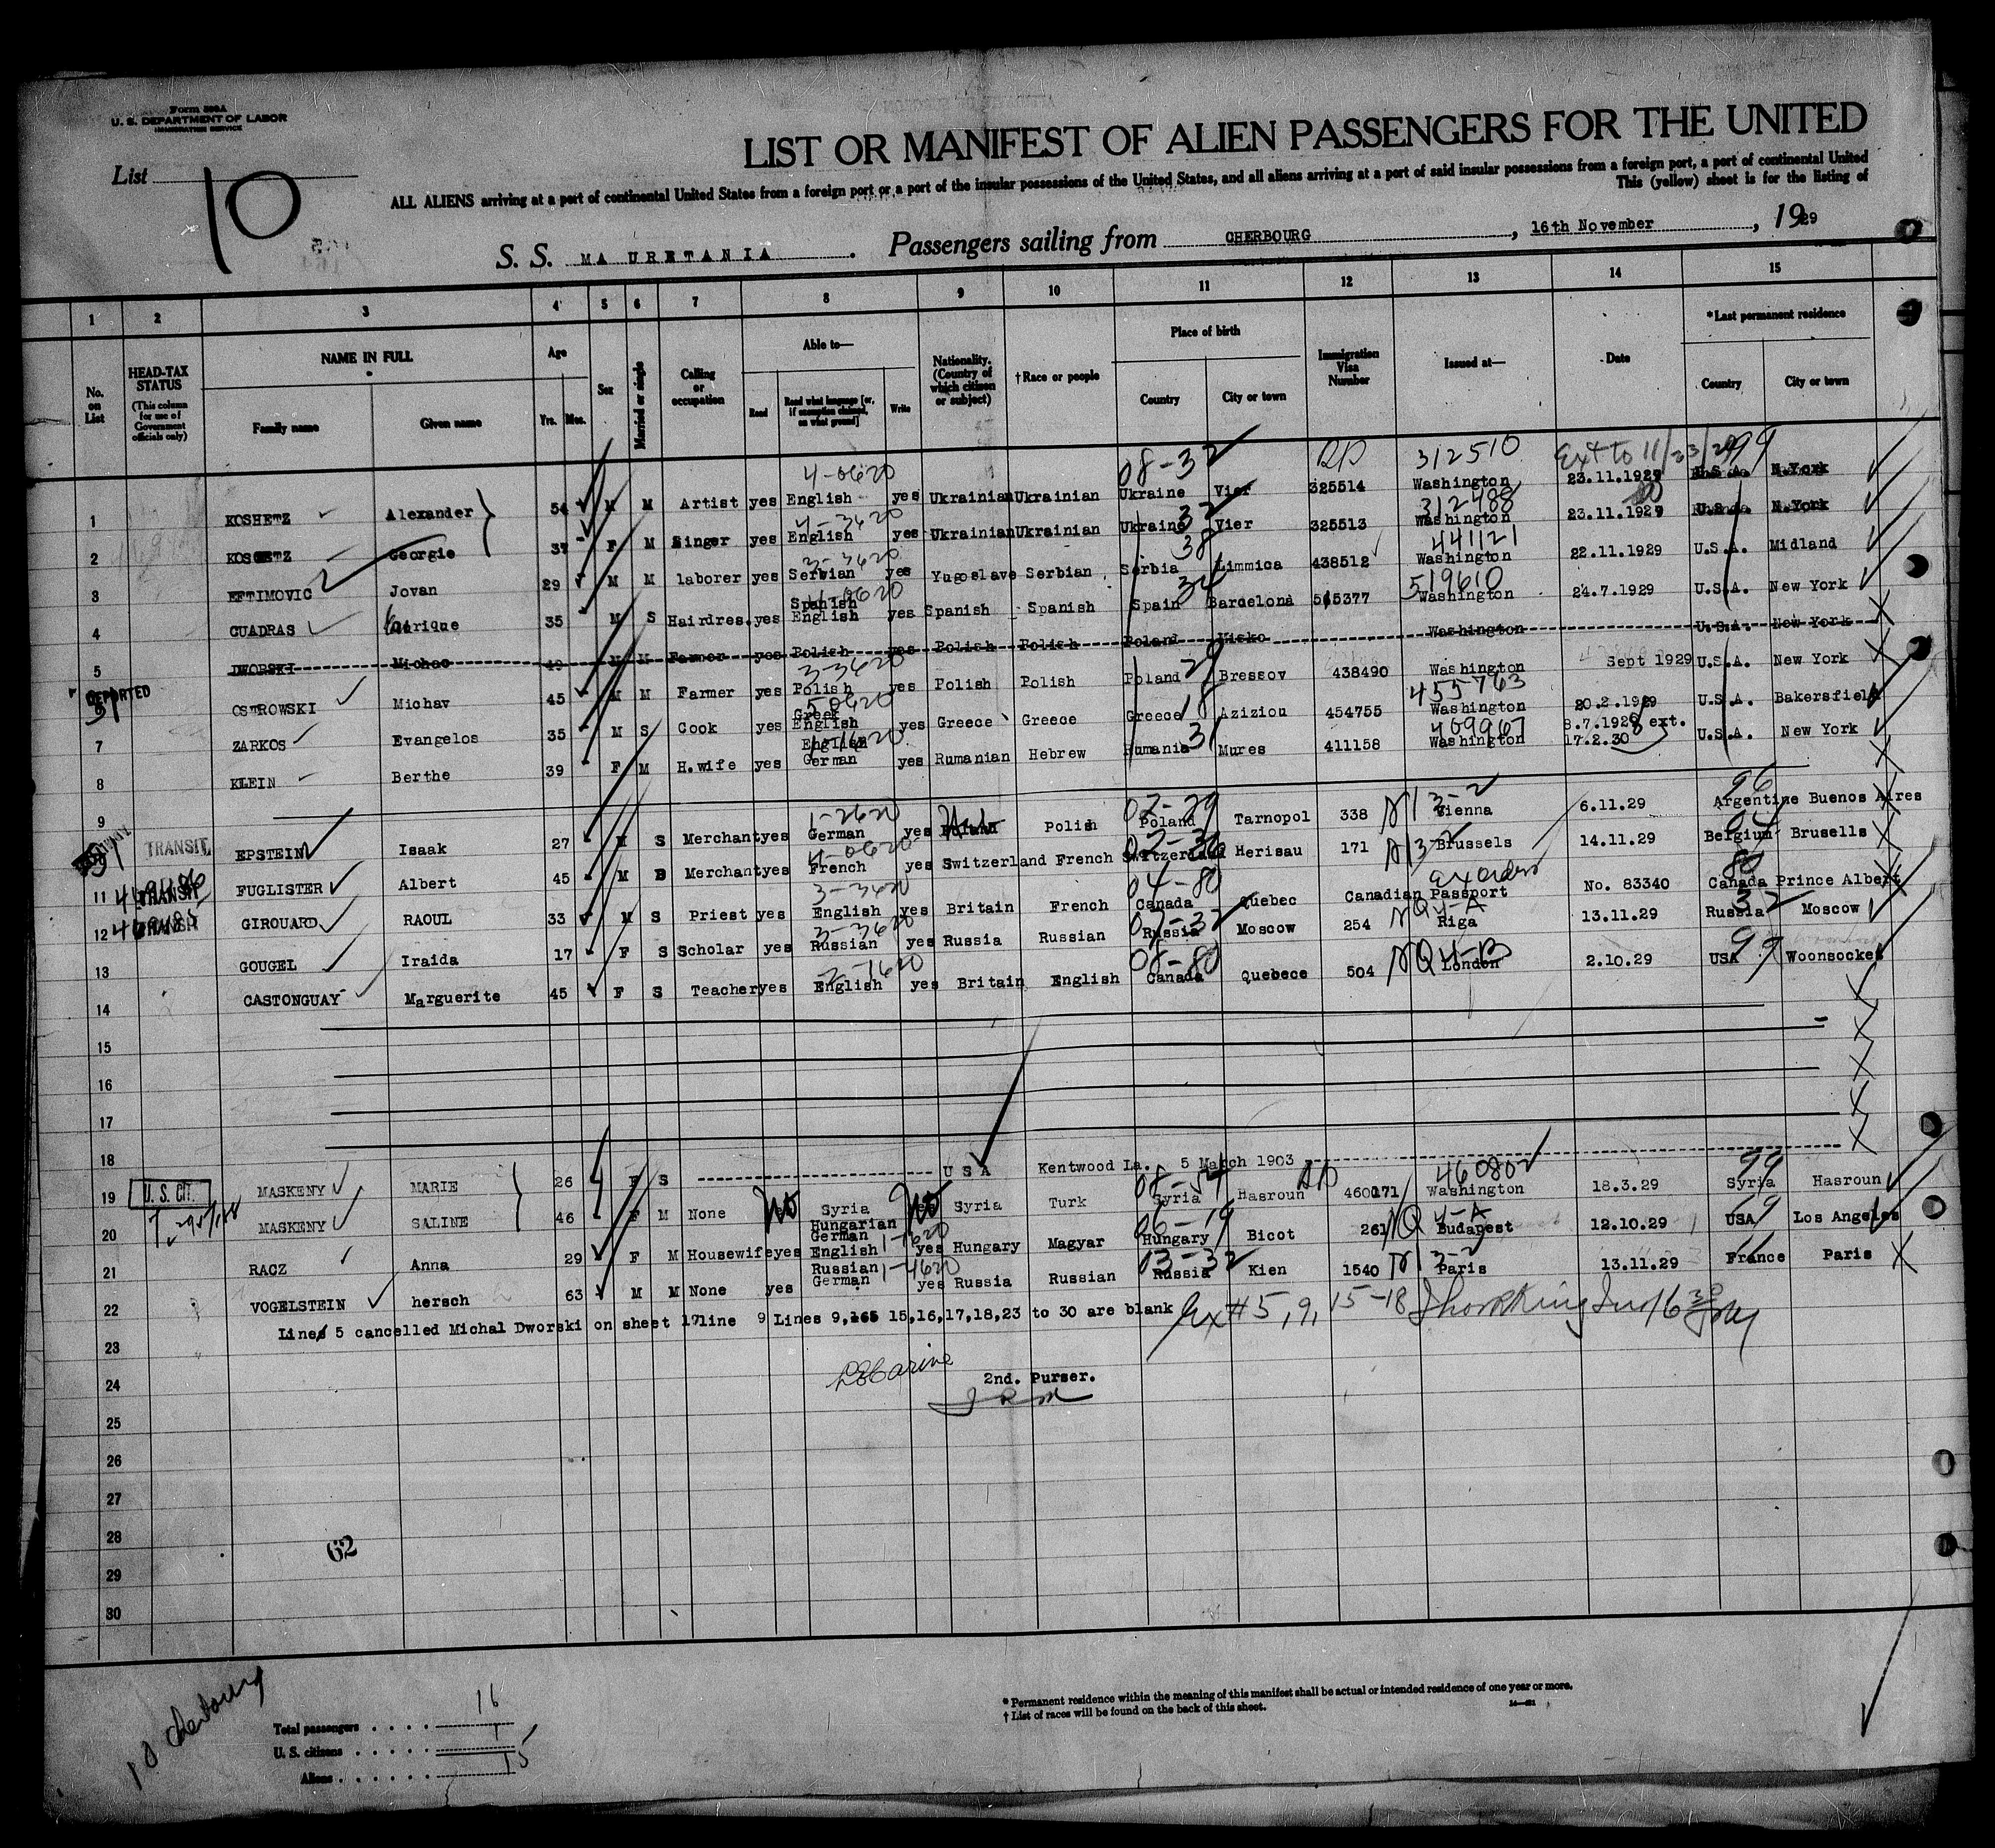 Form 500A
U. S. DEPARTMENT OF LABOR
IMMIGRATION SERVICE
List 10
LIST OR MANIFEST OF ALIEN PASSENGERS FOR THE UNITED
ALL ALIENS arriving at a port of continental United States from a foreign port or a port of the insular possessions of the United States, and all aliens arriving at a port of said insular possessions from a foreign port, a port of continental United
This (yellow) sheet is for the listing of
S. S. MA URETANIA . Passengers sailing from CHERBOURG , 16th November , 1929
1 2 3 4 5 6 7 8 9 10 11 12 13 14 15
No. on List
HEAD-TAX STATUS (This column for use of Government officials only)
NAME IN FULL
Family name Given name
Age Yrs. Mos.
Sex
Married or single
Calling or occupation
Able to—
Read Read what language [or, if exemption claimed, on what ground] Write
Nationality. (Country of which citizen or subject)
†Race or people
Place of birth
Country City or town
Immigration Visa Number
Issued at—
Date
*Last permanent residence
Country City or town
4-0620 08-32 312510 Ext to 11/23/29 99
1 KOSHETZ Alexander 54 M M Artist yes English yes Ukrainian Ukrainian Ukraine Vier 325514 Washington 23.11.1929 U.S.A. N.York
4-3420 32 312488
2 KOSHETZ Georgie 37 F M Singer yes English yes Ukrainian Ukrainian Ukraine Vier 325513 Washington 23.11.1929 U.S.A. N.York
3-3620 38 441121
3 EFTIMOVIC Jovan 29 M M laborer yes Serbian yes Yugoslave Serbian Serbia Limmica 438512 Washington 22.11.1929 U.S.A. Midland
4-0620 34 519610
4 CUADRAS Enrique 35 M S Hairdres. yes Spanish English yes Spanish Spanish Spain Barcelona 515377 Washington 24.7.1929 U.S.A. New York
5 DWORSKI Michao 49 M M Farmer yes Polish yes Polish Polish Poland Nisko Washington U.S.A. New York
3-3620 29
DEPORTED
6 OSTROWSKI Michav 45 M M Farmer yes Polish yes Polish Polish Poland Bressov 438490 Washington Sept 1929 U.S.A. New York
5 0620 18 455763
7 ZARKOS Evangelos 35 M S Cook yes Greek English yes Greece Greece Greece Azizion 454755 Washington 20.2.1929 U.S.A. Bakersfield
1-1620 31 409967
8 KLEIN Berthe 39 F M H.wife yes English German yes Rumanian Hebrew Rumania Mures 411158 Washington 8.7.1928 ext. 17.2.30 U.S.A. New York
9
1-2620 02-29 N 13-2 96
TRANSIT EPSTEIN Isaak 27 M S Merchant yes German yes Polish Poland Tarnopol 338 Vienna 6.11.29 Argentine Buenos Aires
4-0620 02-36
11 TRANSIT FUGLISTER Albert 45 M Merchant yes French yes Switzerland French Switzerland Herisau 171 Brussels 14.11.29 Belgium Brusells
3-3420 04-80 Ex orders 80
12 TRANSIT GIROUARD RAOUL 33 M S Priest yes English yes Britain French Canada Quebec Canadian Passport No. 83340 Canada Prince Albert
3-3620 07-32 NQ 4-A 32
13 GOUGEL Iraida 17 F S Scholar yes Russian yes Russia Russian Russia Moscow 254 Riga 13.11.29 Russia Moscow
2-1620 08-80 NQ 4-B 99
14 CASTONGUAY Marguerite 45 F S Teacher yes English yes Britain English Canada Quebece 504 London 2.10.29 USA Woonsocket
15
16
17
18
19 U. S. CIT. MASKENY MARIE 26 F S U S A Kentwood La. 5 March 1903
08-54 RP 460802 99
20 MASKENY SALINE 46 F M None No Syria No Syria Turk Syria Hasroun 460171 Washington 18.3.29 Syria Hasroun
1-1620 06-19 NQ 4-A 99
21 RACZ Anna 29 F M Housewife yes Hungarian German English yes Hungary Magyar Hungary Bicot 261 Budapest 12.10.29 USA Los Angeles
1-4620 03-32 N 13-2
22 VOGELSTEIN hersch 63 M M None yes Russian German yes Russia Russian Russia Kien 1540 Paris 13.11.29 France Paris
Lines 5 cancelled Michal Dworski on sheet 17line 9 Lines 9, 15,16,17,18,23 to 30 are blank Ex # 5, 9, 15-18
23
24 2nd. Purser.
25
26
27
28
29
30
62
Cherbourg
Total passengers . . . . 16
U. S. citizens . . . . . 1
Aliens . . . . . . 15
* Permanent residence within the meaning of this manifest shall be actual or intended residence of one year or more.
† List of races will be found on the back of this sheet.